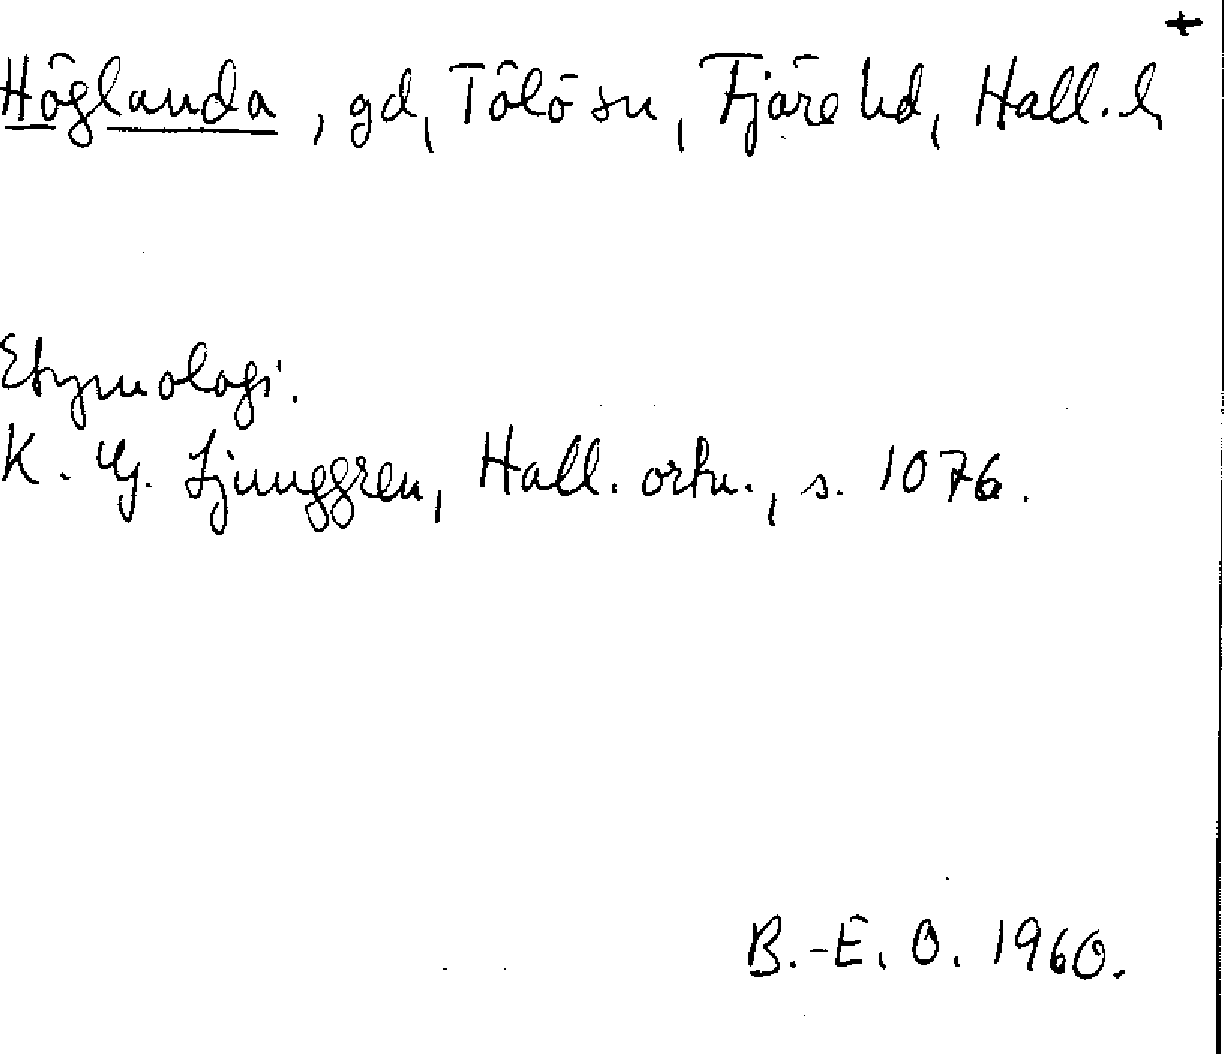 +
Höglanda, gd, Tölö sn, Fjäre hd, Hall. l
Etymologi.
K. G. Ljunggren, Hall. ortn., s. 107 6.
B.-E. O. 1960.